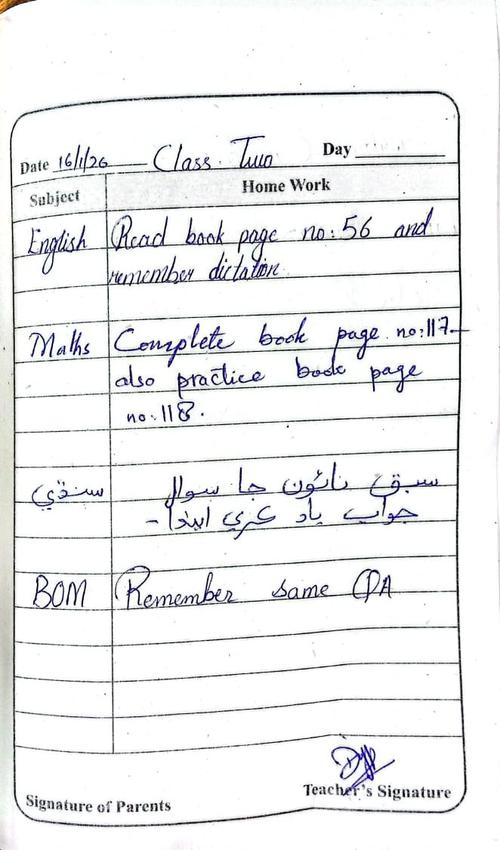 Date 16/1/26 Class Two Day
Subject Home Work
English Read book page no:56 and
remember dictation
Maths Complete book page no:117
also practice book page
no:118.
سنڌي سبق نائون جا سوال
جواب ياد ڪري ايندا-
BOM Remember same QA
Signature of Parents Teacher's Signature